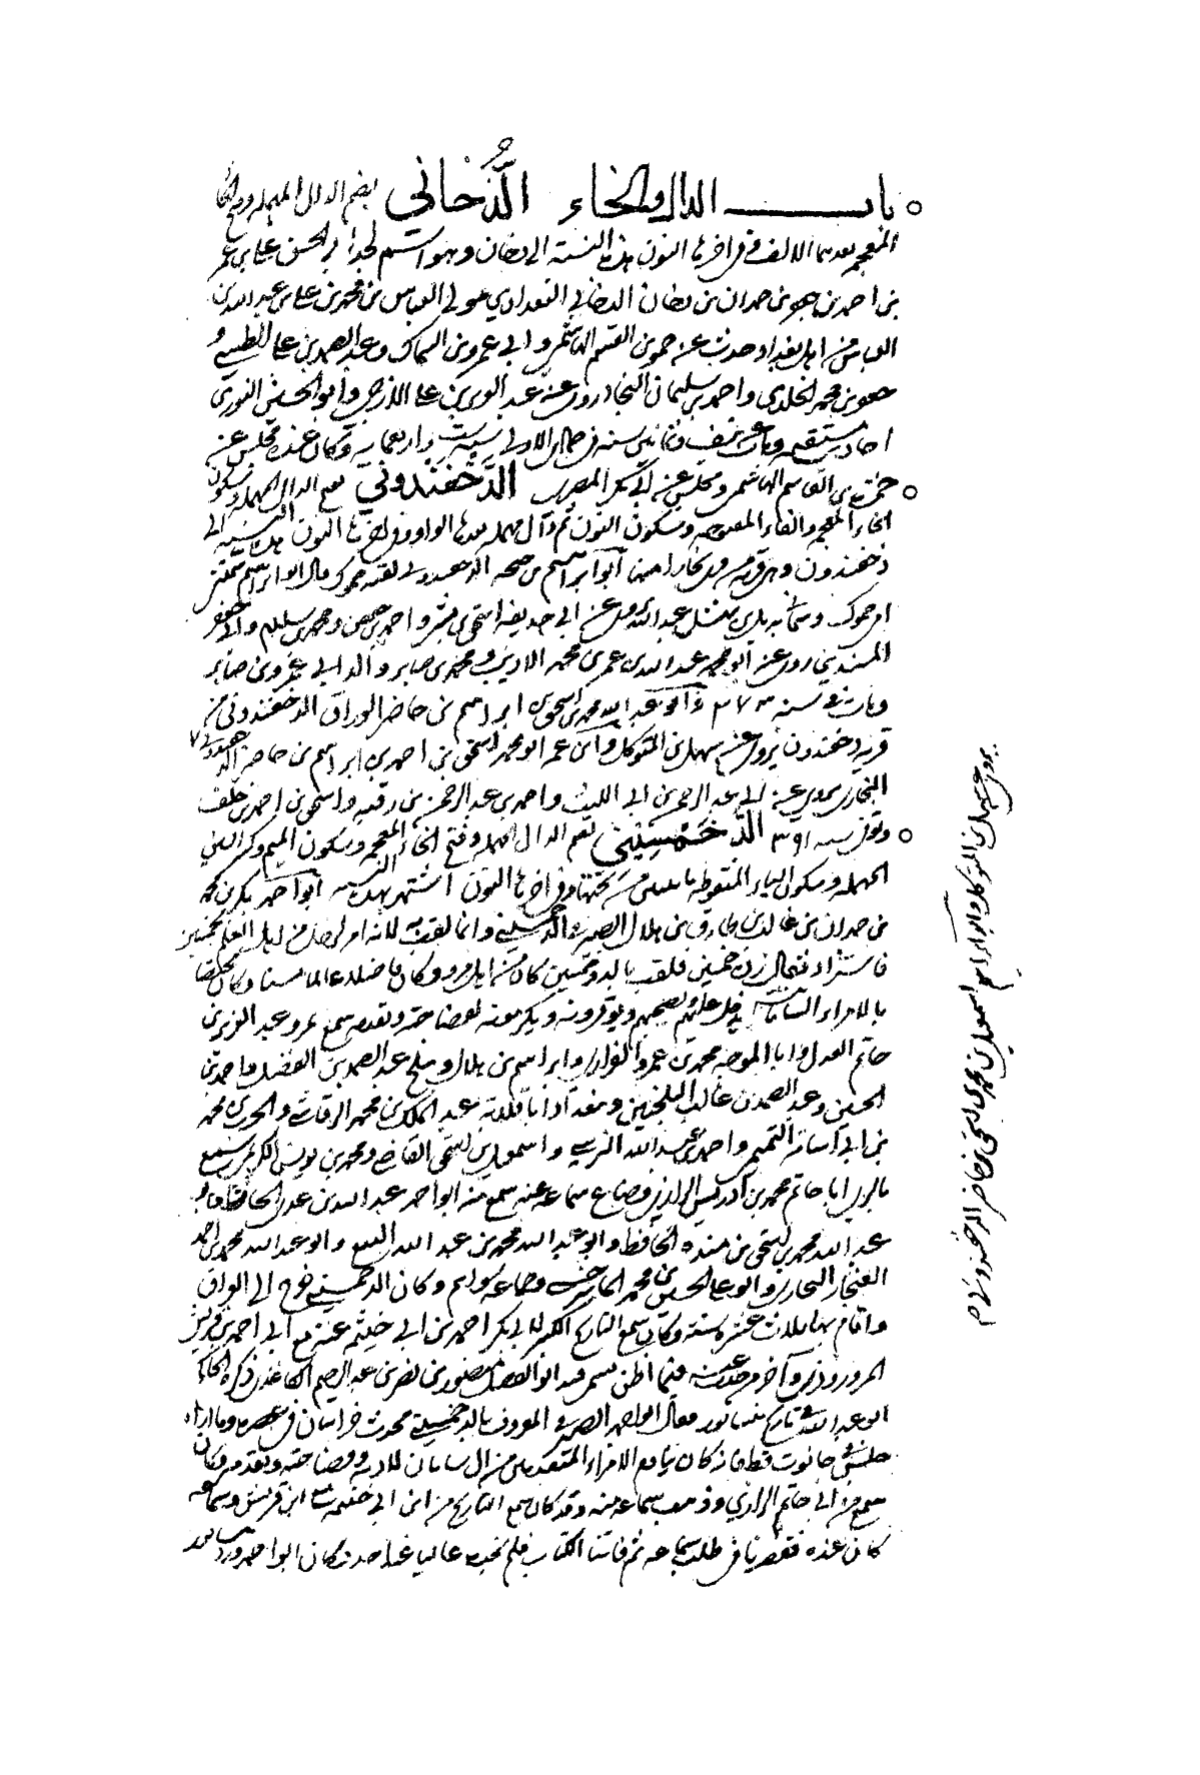 باب الدال والخاء الدُّخاني بضم الدال المهملة وفتح الخا
المعجمة بعدهما الالف وفي اخرها النون هذه النسبة الى دخان وهو اسم لجد ابي الحسن علي بن عمر
بن احمد بن جعفر بن حمدان بن دخان الدخاني البغدادي مولى العباس بن محمد بن علي بن عبد الله بن
العباس من اهل بغداد حدث عن حمزة بن القسم الهاشمي وابي عمرو بن السماك وعبد الصمد بن علي الطستي و
جعفر بن محمد الخلدي واحمد بن سليمان النجاد روى عنه عبد العزيز بن علي الازجي وابو الحسن النوري
احاديث مستقيمة ومات عن نيف وثمانين سنة في جمادى الاولى سنة ست واربعماية وكان عنده مجلس عن
حمزة بن القاسم الهاشمي ومجلس عن ابي بكر المصري الدَّخْفَنْدوني بفتح الدال المهملة وسكون
الخاء المعجمة والفاء المفتوحة وسكون النون ثم دال مهملة بعدها الواو وفي اخرها النون هذه النسبة الى
دخفندون وهي قرية من قرى بخارا منها ابو ابراهيم بن صحه الدخفندوني لقبه حموك قال ابو ابراهيم سمتني
امي حموك وسماني عبد الله روى عن ابي حذيفة اسحق بن بشر واحمد بن حفص ومحمد بن سلام وابي جعفر
المسندي روى عنه ابو محمد عبد الله بن محمد الاديب ومحمد بن صابر والد ابي عمرو بن صابر
ومات في سنة ٢٧٣ وابو عبد الله محمد بن اسحق بن ابراهيم بن حاضر الوراق الدخفندوني من
قرية دخفندون يروي عن سهل بن المتوكل وابن عمه ابو محمد اسحق بن احمد بن ابراهيم بن حاضر الدخفندوني
البخاري يروي عن ابي عبد الرحمن بن ابي الليث واحمد بن عبد الرحمن بن رقبه واسحق بن احمد بن خلف
وتوفي سنة ٣٩١ الدَّخَمْسِيني بفتح الدال المهملة وفتح الخاء المعجمة وسكون الميم وكسر السين
المهملة وسكون الياء المنقوطة باثنتين من تحتها وفي اخرها النون اشتهر بهذه النسبة ابو احمد بكر بن محمد
بن حمدان بن غالب بن هلال الصيرفي الدخمسيني وانما لقب به لانه امر لرجل من اهل العلم بخمسين
فاستزاد فقال زن خمسين فلقب بالدخمسين كان من اهل مرو وكان فاضلا عالما مسنا وكان مختصا
بالامراء السامانية يدخل عليهم ويصحبهم ويوقرونه ويكرمونه لفصاحته وتقدمه سمع بمرو عبد العزيز بن
حاتم العدل وابا الموجه محمد بن عمرو الفزاري وابراهيم بن هلال وببلخ عبد الصمد بن الفضل واحمد بن
الحسين وعبد الصمد بن غالب البلخيين وببغداد ابا قلابة عبد الملك بن محمد الرقاشي والحرث بن محمد
بن ابي اسامة التميمي واحمد بن عبيد الله النرسي واسمعيل بن اسحق القاضي ومحمد بن يونس الكديمي وسمع
بالري ابا حاتم محمد بن ادريس الرازي وضاع سماعه عنه سمع منه ابو احمد عبد الله بن عدي الحافظ وابو
عبد الله محمد بن اسحق بن منده الحافظ وابو عبد الله محمد بن عبد الله البيع وابو عبد الله محمد بن احمد
الغنجار البخاري وابو علي الحسين بن محمد الماسرجسي وجماعة سواهم وكان الدخمسيني خرج الى العراق
واقام بها ثلاث عشرة سنة وكان سمع التاريخ الكبير لابي بكر احمد بن ابي خيثمة عنه مع ابي احمد بن قريش
المروروذي وآخر من حدث عنه فيما اظن بسمرقند ابو الفضل منصور بن نصر بن عبد الرحيم الكاغذي ذكره الحاكم
ابو عبد الله في تاريخ نيسابور فقال ابو احمد الصيرفي المعروف بالدخمسيني محدث خراسان في عصره وما اراه
جلس في حانوت قط فانه كان ينادم الامراء المتقدمين من آل سامان لادبه وفصاحته وتقدمه وكان
سمع من ابي حاتم الرازي وذهب سماعه منه وقد كان سمع التاريخ من ابن ابي خيثمة مع ابن قريش وسماعه
كان عنده فقصرنا في طلب سماعه ثم فاتنا الكتاب فلم نجده عاليا عند احد وكان ابو احمد ورد نيسابور
يروي عن سهل بن المتوكل وابو ابراهيم اسمعيل بن محمد بن اسحق بن حاضر الدخفندوني